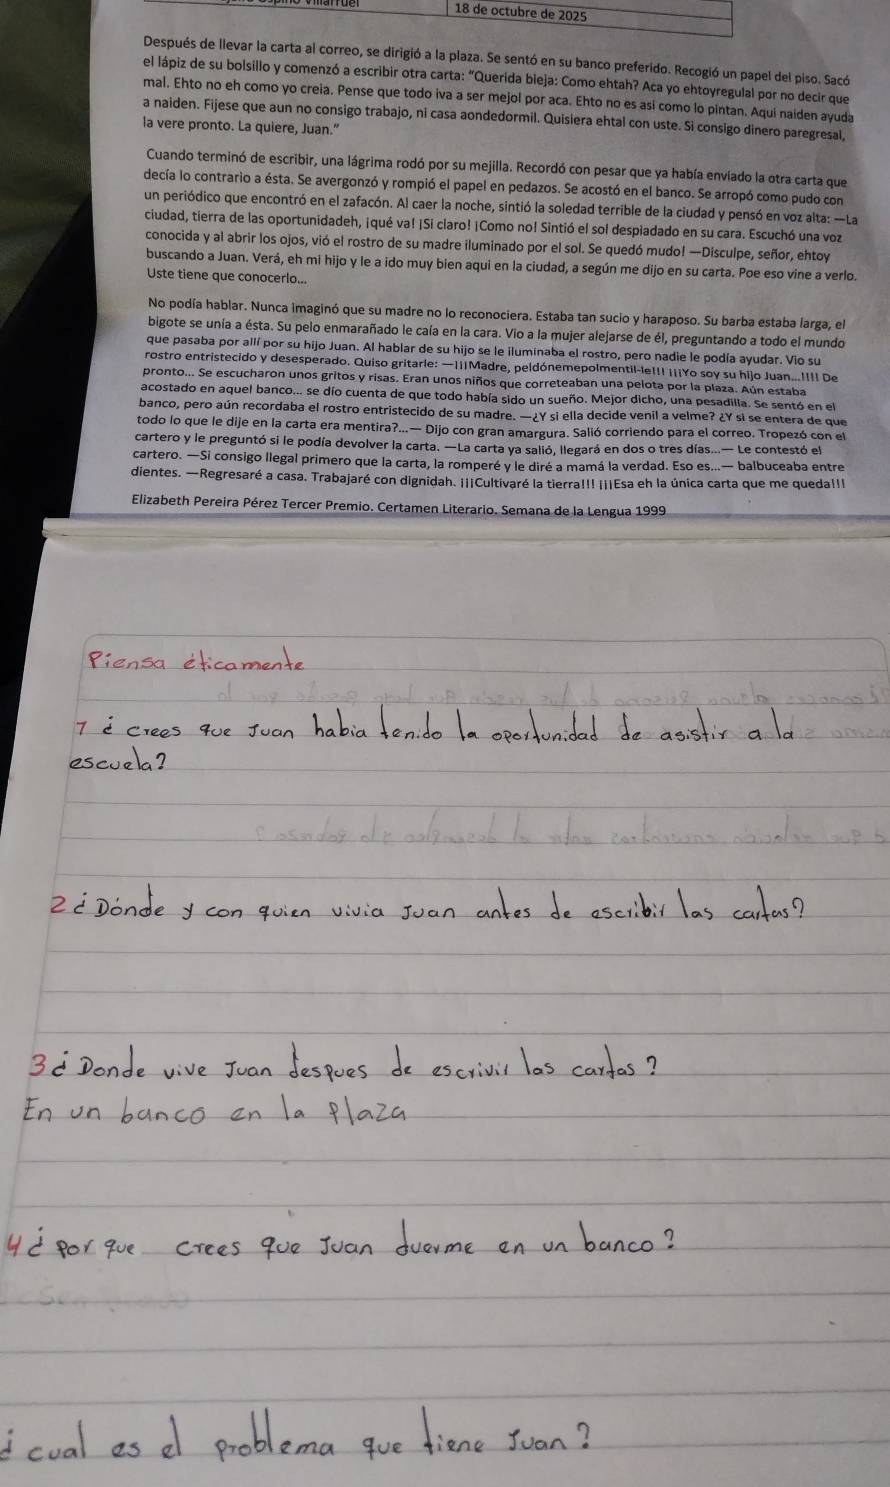 18 de octubre de 2025
Después de llevar la carta al correo, se dirigió a la plaza. Se sentó en su banco preferido. Recogió un papel del piso. Sacó
el lápiz de su bolsillo y comenzó a escribir otra carta: "Querida bieja: Como ehtah? Aca yo ehtoyregulal por no decir que
mal. Ehto no eh como yo creia. Pense que todo iva a ser mejol por aca. Ehto no es asi como lo pintan. Aqui naiden ayuda
a naiden. Fijese que aun no consigo trabajo, ni casa aondedormil. Quisiera ehtal con uste. Si consigo dinero paregresal,
la vere pronto. La quiere, Juan."
Cuando terminó de escribir, una lágrima rodó por su mejilla. Recordó con pesar que ya había enviado la otra carta que
decía lo contrario a ésta. Se avergonzó y rompió el papel en pedazos. Se acostó en el banco. Se arropó como pudo con
un periódico que encontró en el zafacón. Al caer la noche, sintió la soledad terrible de la ciudad y pensó en voz alta: —La
ciudad, tierra de las oportunidadeh, ¡qué va! ¡Si claro! ¡Como no! Sintió el sol despiadado en su cara. Escuchó una voz
conocida y al abrir los ojos, vió el rostro de su madre iluminado por el sol. Se quedó mudo! —Disculpe, señor, ehtoy
buscando a Juan. Verá, eh mi hijo y le a ido muy bien aqui en la ciudad, a según me dijo en su carta. Poe eso vine a verlo.
Uste tiene que conocerlo...
No podía hablar. Nunca imaginó que su madre no lo reconociera. Estaba tan sucio y haraposo. Su barba estaba larga, el
bigote se unía a ésta. Su pelo enmarañado le caía en la cara. Vio a la mujer alejarse de él, preguntando a todo el mundo
que pasaba por allí por su hijo Juan. Al hablar de su hijo se le iluminaba el rostro, pero nadie le podía ayudar. Vio su
rostro entristecido y desesperado. Quiso gritarle: —¡¡¡Madre, peldónemepolmentil-le!!! ¡¡¡Yo soy su hijo Juan...!!!! De
pronto... Se escucharon unos gritos y risas. Eran unos niños que correteaban una pelota por la plaza. Aún estaba
acostado en aquel banco... se dío cuenta de que todo había sido un sueño. Mejor dicho, una pesadilla. Se sentó en el
banco, pero aún recordaba el rostro entristecido de su madre. —¿Y si ella decide venil a velme? ¿Y si se entera de que
todo lo que le dije en la carta era mentira?...— Dijo con gran amargura. Salió corriendo para el correo. Tropezó con el
cartero y le preguntó si le podía devolver la carta. —La carta ya salió, llegará en dos o tres días...— Le contestó el
cartero. —Si consigo llegal primero que la carta, la romperé y le diré a mamá la verdad. Eso es...— balbuceaba entre
dientes. —Regresaré a casa. Trabajaré con dignidah. ¡¡¡Cultivaré la tierra!!! ¡¡¡Esa eh la única carta que me queda!!!
Elizabeth Pereira Pérez Tercer Premio. Certamen Literario. Semana de la Lengua 1999
Piensa éticamente
1 ¿ crees que Juan habia tenido la oportunidad de asistir a la
escuela?
2 ¿Dónde y con quien vivia Juan antes de escribir las cartas?
3 ¿Donde vive Juan despues de escrivir las cartas?
En un banco en la plaza
4 ¿ por que crees que Juan duerme en un banco?
¿cual es el problema que tiene Juan?